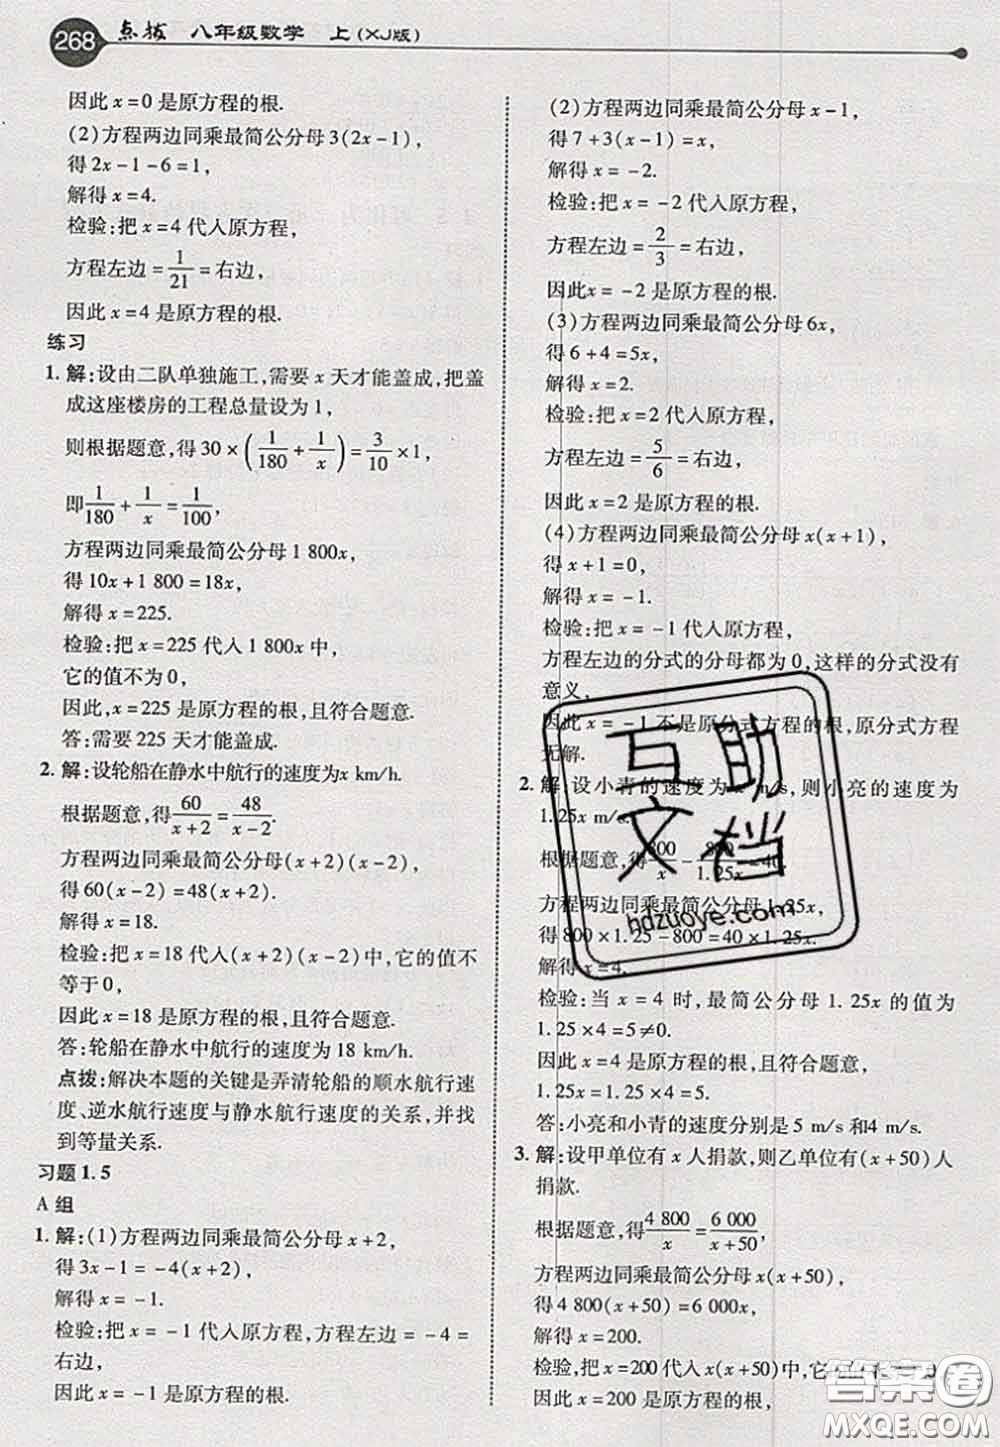 268 点拨 八年级数学 上(XJ版)
因此 x=0 是原方程的根.
(2)方程两边同乘最简公分母 3(2x-1),
得 2x-1-6=1,
解得 x=4.
检验:把 x=4 代入原方程,
方程左边=1/21=右边,
因此 x=4 是原方程的根.
练习
1. 解:设由二队单独施工,需要 x 天才能盖成,把盖
成这座楼房的工程总量设为 1,
则根据题意,得 30×(1/180+1/x)=3/10×1,
即1/180+1/x=1/100,
方程两边同乘最简公分母 1 800x,
得 10x+1 800=18x,
解得 x=225.
检验:把 x=225 代入 1 800x 中,
它的值不为 0,
因此,x=225 是原方程的根,且符合题意.
答:需要 225 天才能盖成.
2. 解:设轮船在静水中航行的速度为x km/h.
根据题意,得60/(x+2)=48/(x-2).
方程两边同乘最简公分母(x+2)(x-2),
得 60(x-2)=48(x+2).
解得 x=18.
检验:把 x=18 代入(x+2)(x-2)中,它的值不
等于 0,
因此 x=18 是原方程的根,且符合题意.
答:轮船在静水中航行的速度为 18 km/h.
点拨:解决本题的关键是弄清轮船的顺水航行速
度、逆水航行速度与静水航行速度的关系,并找
到等量关系.
习题 1.5
A 组
1. 解:(1)方程两边同乘最简公分母 x+2,
得 3x-1=-4(x+2),
解得 x=-1.
检验:把 x=-1 代入原方程,方程左边=-4=
右边,
因此 x=-1 是原方程的根.
(2)方程两边同乘最简公分母 x-1,
得 7+3(x-1)=x,
解得 x=-2.
检验:把 x=-2 代入原方程,
方程左边=2/3=右边,
因此x=-2 是原方程的根.
(3)方程两边同乘最简公分母 6x,
得 6+4=5x,
解得 x=2.
检验:把 x=2 代入原方程,
方程左边=5/6=右边,
因此 x=2 是原方程的根.
(4)方程两边同乘最简公分母 x(x+1),
得 x+1=0,
解得 x=-1.
检验:把 x=-1 代入原方程,
方程左边的分式的分母都为 0,这样的分式没有
意义,
因此 x=-1 不是原分式方程的根,原分式方程
无解.
2. 解:设小青的速度为 x m/s,则小亮的速度为
1.25x m/s.
根据题意,得800/x-800/1.25x=40.
方程两边同乘最简公分母 1.25x,
得 800×1.25-800=40×1.25x.
解得 x=4.
检验:当 x=4 时,最简公分母 1.25x 的值为
1.25×4=5≠0.
因此 x=4 是原方程的根,且符合题意,
1.25x=1.25×4=5.
答:小亮和小青的速度分别是 5 m/s 和4 m/s.
3. 解:设甲单位有 x 人捐款,则乙单位有(x+50)人
捐款.
根据题意,得4 800/x=6 000/(x+50),
方程两边同乘最简公分母 x(x+50),
得 4 800(x+50)=6 000x,
解得 x=200.
检验,把 x=200 代入 x(x+50)中,它
因此 x=200 是原方程的根,
互助文档
hdzuoye.com
答案圈
MXQE.COM